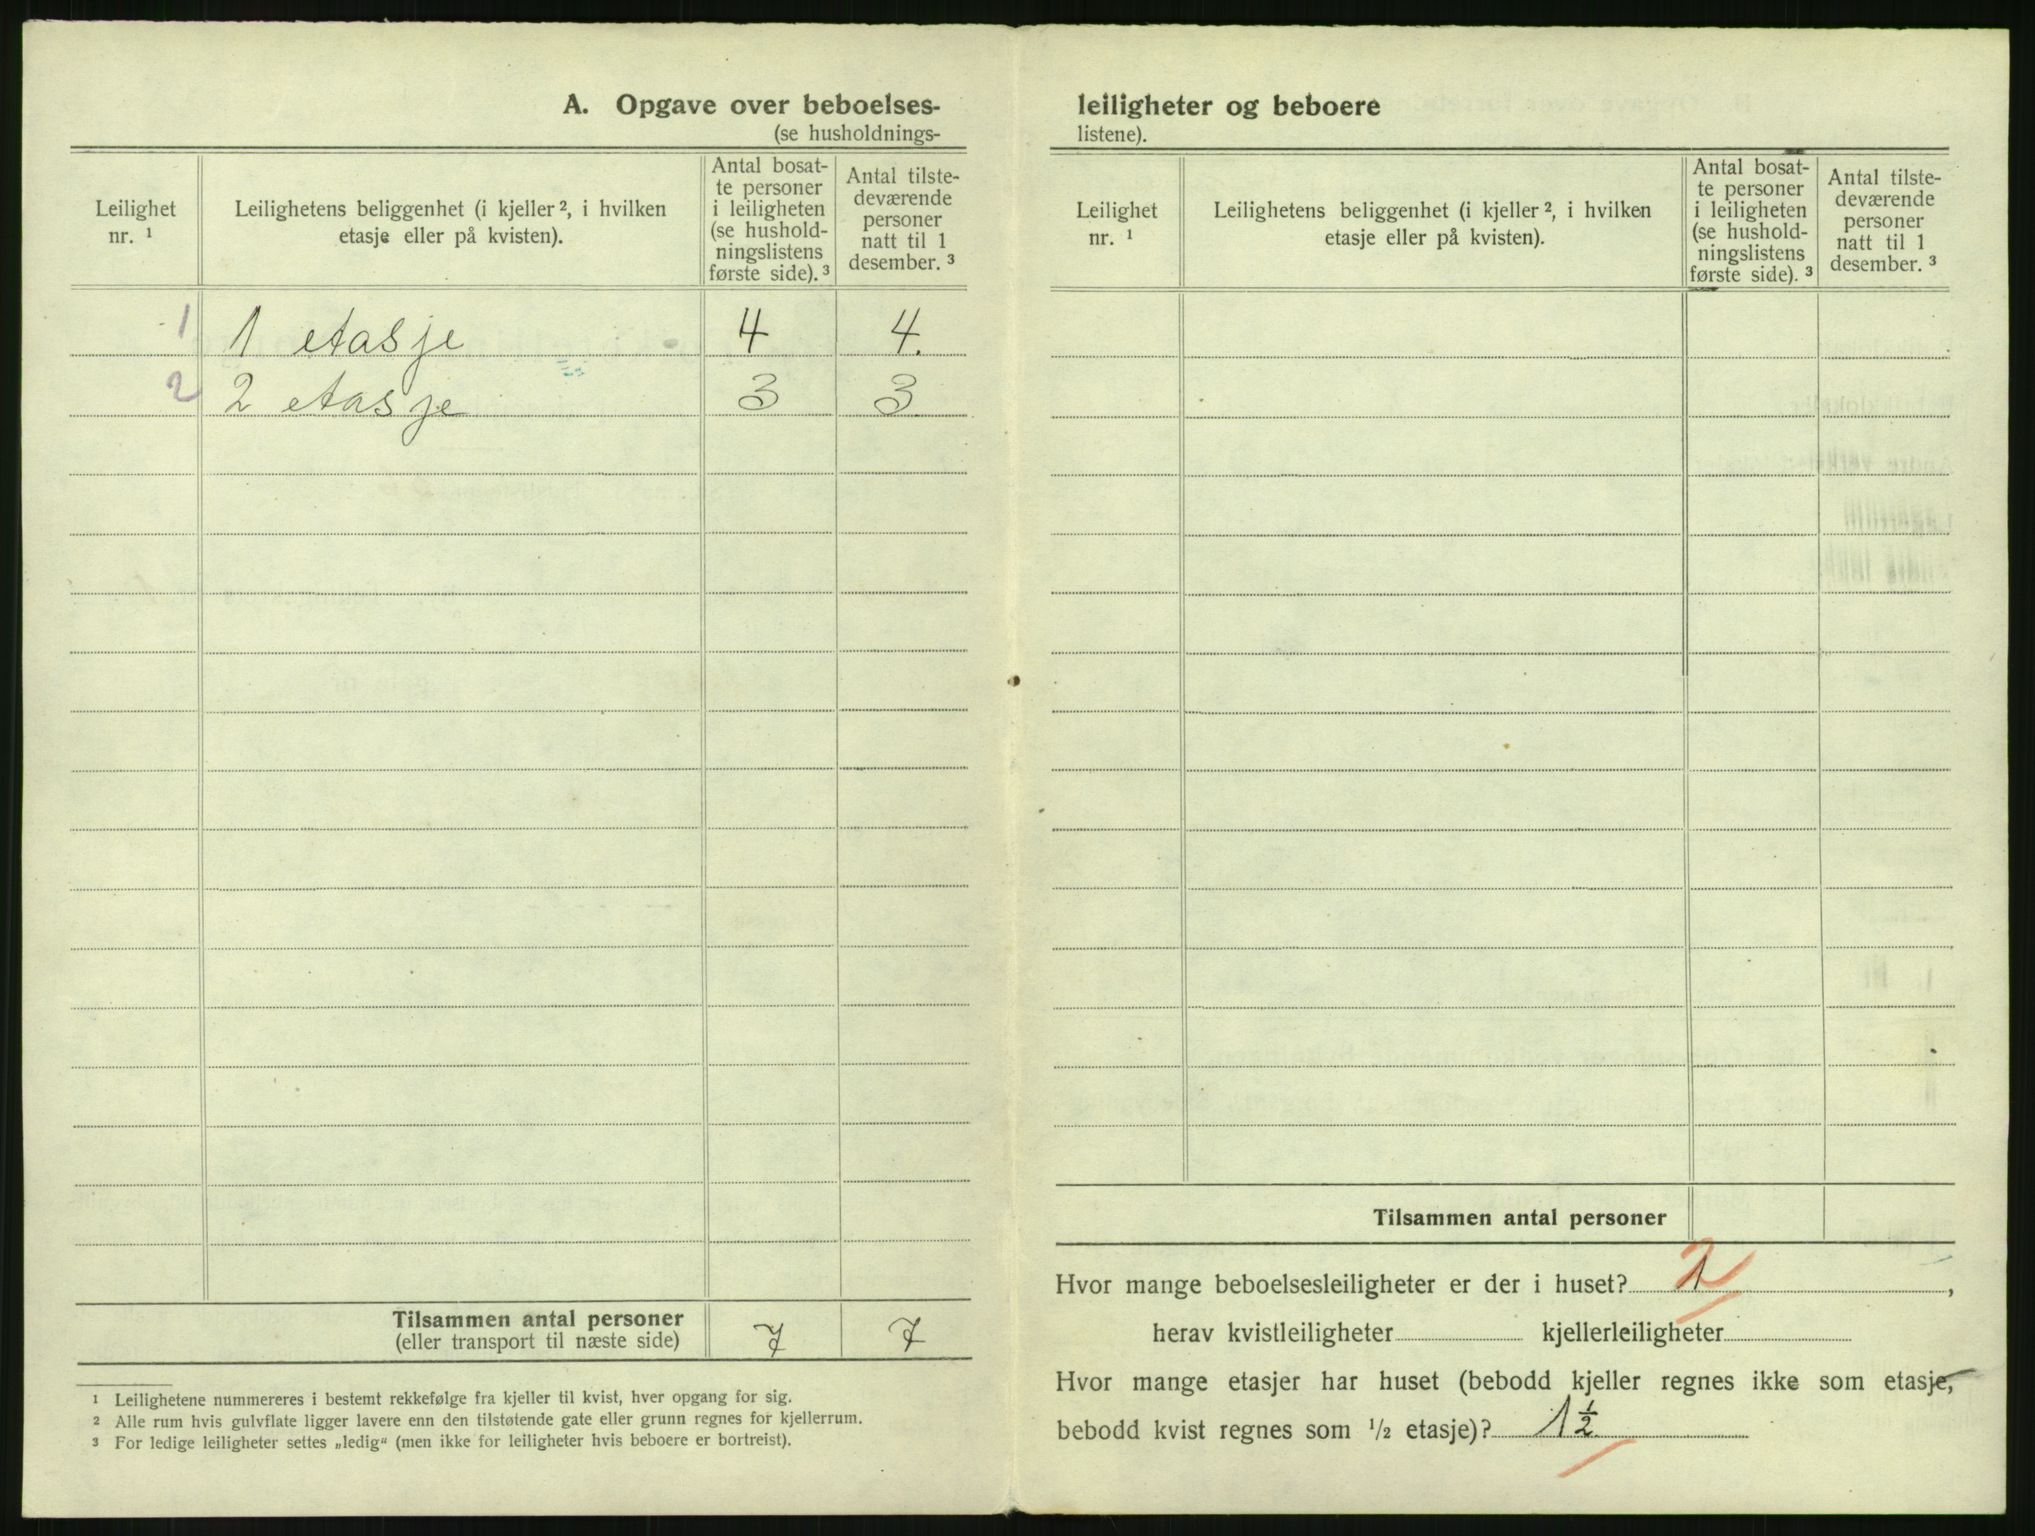 A. Opgave over beboelses-
(se husholdnings-
Leilighet
nr. 1
Leilighetens beliggenhet (i kjeller 2, i hvilken
etasje eller på kvisten).
Antal bosat-
te personer
i leiligheten
(se hushold-
ningslistens
første side). 3
Antal tilste-
deværende
personer
natt til 1
desember. 3
1 1 etasje 4 4.
2 2 etasje 3 3
Tilsammen antal personer
(eller transport til næste side)
7 7
1 Leilighetene nummereres i bestemt rekkefølge fra kjeller til kvist, hver opgang for sig.
2 Alle rum hvis gulvflate ligger lavere enn den tilstøtende gate eller grunn regnes for kjellerrum.
3 For ledige leiligheter settes „ledig“ (men ikke for leiligheter hvis beboere er bortreist).
leiligheter og beboere
listene).
Leilighet
nr. 1
Leilighetens beliggenhet (i kjeller 2, i hvilken
etasje eller på kvisten).
Antal bosat-
te personer
i leiligheten
(se hushold-
ningslistens
første side). 3
Antal tilste-
deværende
personer
natt til 1
desember. 3
Tilsammen antal personer
Hvor mange beboelsesleiligheter er der i huset? 2,
herav kvistleiligheter kjellerleiligheter
Hvor mange etasjer har huset (bebodd kjeller regnes ikke som etasje,
bebodd kvist regnes som 1/2 etasje)? 1 1/2